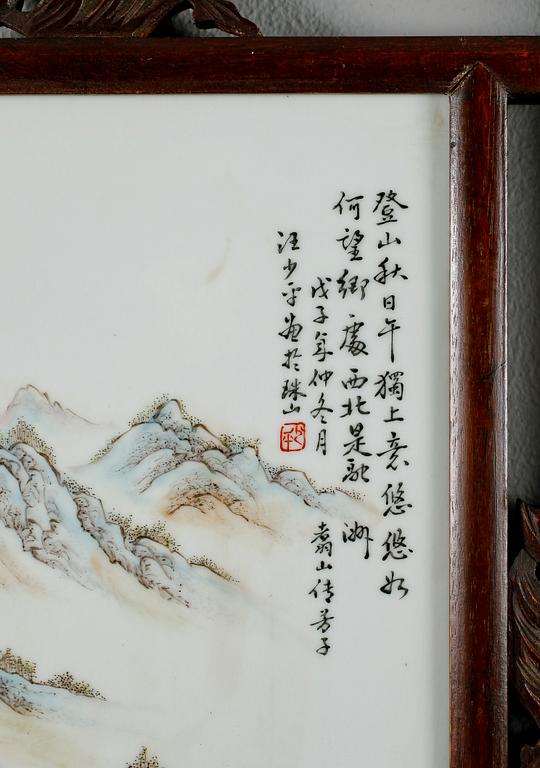 登山秋日午獨上意悠悠如
何望鄉處西北是融洲
翥山傳芳子
戊子年仲冬月
汪少平畫於珠山